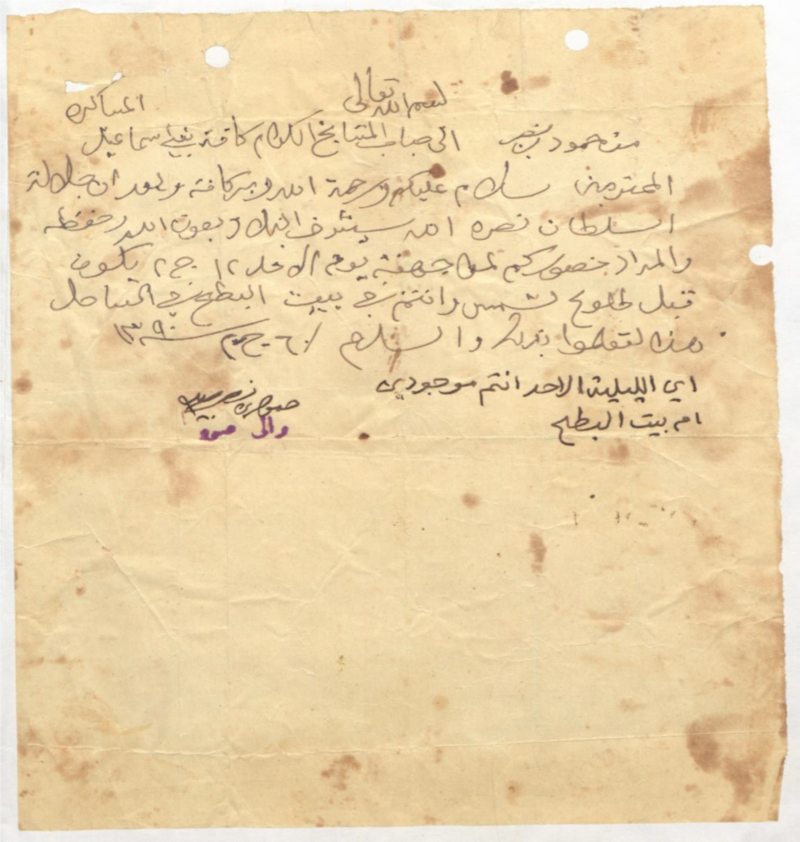 بسم الله تعالى
المساكره
من حمود بن نصر الى جناب المشايخ الكرام كافة بني اسماعيل
المحترمين سلام عليكم ورحمة الله وبركاته وبعد ان جلالة
السلطان نصره الله سيشرف البلاد بعون الله وحفظه
والمراد حضوركم لمواجهته يوم الاحد ١٢ ج٢ يكون
قبل طلوع شمس وانتم في بيت البطح في الساحل
هذا لتعلموا بذلك والسلام / ٦ ج٢ سنة ١٣٩٠
اي الليلة الاحد انتم موجودين
ام بيت البطح
حمود بن نصر
والي صور